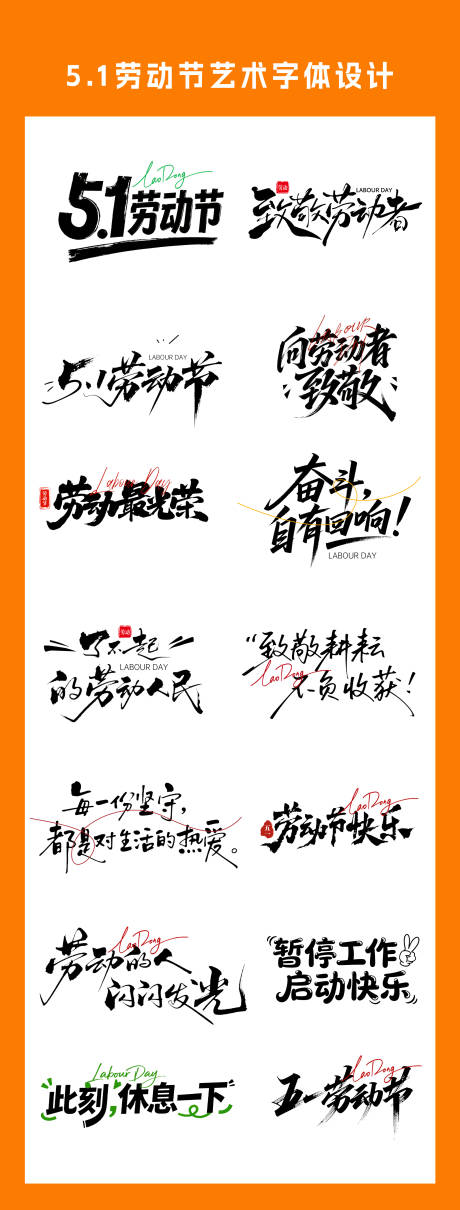 5.1劳动节艺术字体设计
LaoDong
5.1劳动节
劳动
LABOUR DAY
致敬劳动者
LABOUR DAY
5.1劳动节
LABOUR
向劳动者
致敬
Labour Day
劳动最光荣
奋斗,
自有回响!
LABOUR DAY
劳动
了不起
LABOUR DAY
的劳动人民
“致敬耕耘
LaoDong
不负收获!
每一份坚守,
都是对生活的热爱。
LaoDong
五一
劳动节快乐
LaoDong
劳动的人
闪闪发光
暂停工作
启动快乐
Labour Day
此刻,休息一下
LaoDong
五一劳动节